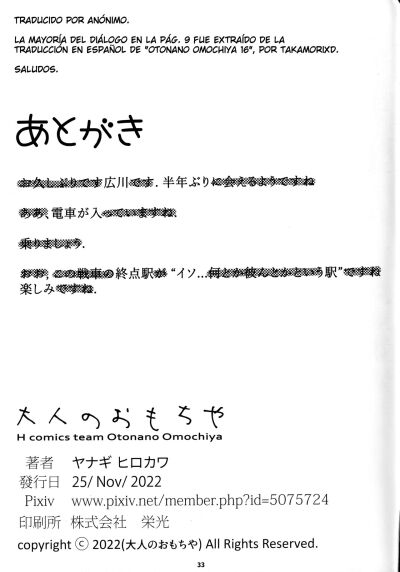 TRADUCIDO POR ANÓNIMO.
LA MAYORÍA DEL DIÁLOGO EN LA PÁG. 9 FUE EXTRAÍDO DE LA
TRADUCCIÓN EN ESPAÑOL DE "OTONANO OMOCHIYA 16", POR TAKAMORIXD.
SALUDOS.
あとがき
お久しぶりです広川です. 半年ぶりに会えるようですね
ああ, 電車が入っていますね.
乗りましょう.
おお, この戦車の終点駅が "イソ...何とか彼んとかという駅" ですね
楽しみですね.
大人のおもちや
H comics team Otonano Omochiya
著者 ヤナギ ヒロカワ
発行日 25/ Nov/ 2022
Pixiv www.pixiv.net/member.php?id=5075724
印刷所 株式会社 栄光
copyright ⓒ 2022(大人のおもちや) All Rights Reserved.
33